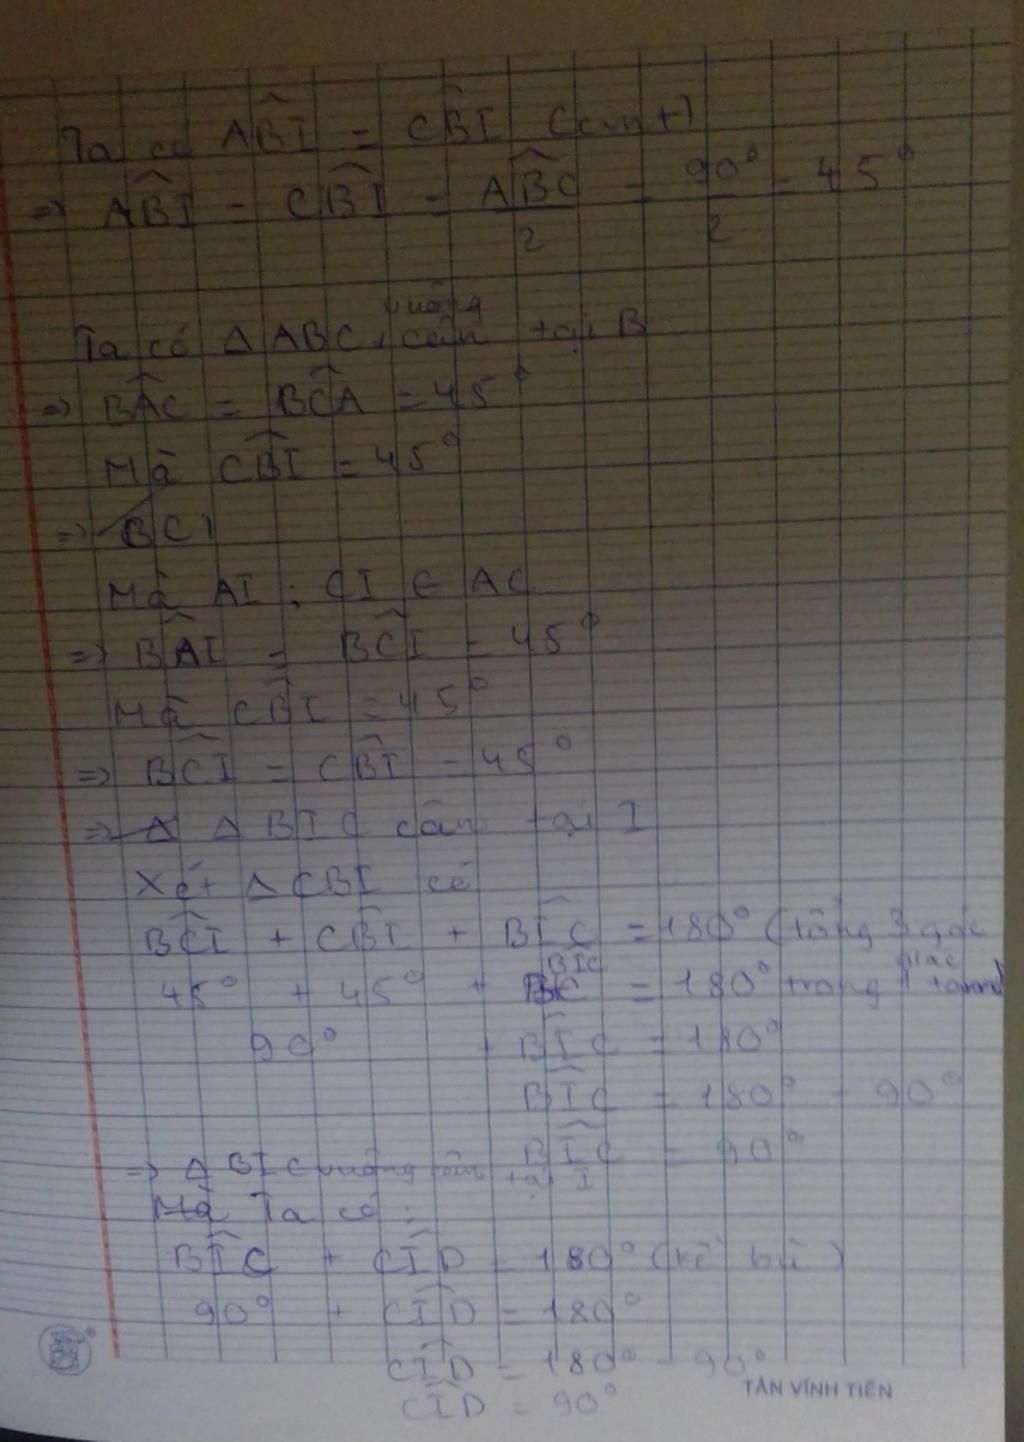 Ta có ABI^ = CBI^ (cmt)
=> ABI^ = CBI^ = ABC^/2 = 90°/2 = 45°
Ta có Δ ABC vuông cân tại B
=> BAC^ = BCA^ = 45°
Mà CBI^ = 45°
=> BCI
Mà AI ; CI ∈ AC
=> BAI^ = BCI^ = 45°
Mà CBI^ = 45°
=> BCI^ = CBI^ = 45°
=> Δ Δ BIC cân tại I
Xét Δ CBI có
BCI^ + CBI^ + BIC^ = 180° (tổng 3 góc
45° + 45° + BIC^ = 180° trong 1 tam giác
90° + BIC^ = 180°
BIC^ = 180° - 90°
BIC^ = 90°
=> Δ BIC vuông cân tại I
Mà Ta có :
BIC^ + CID^ = 180° (kề bù)
90° + CID^ = 180°
CID^ = 180° - 90°
CID^ = 90°
TÂN VĨNH TIẾN